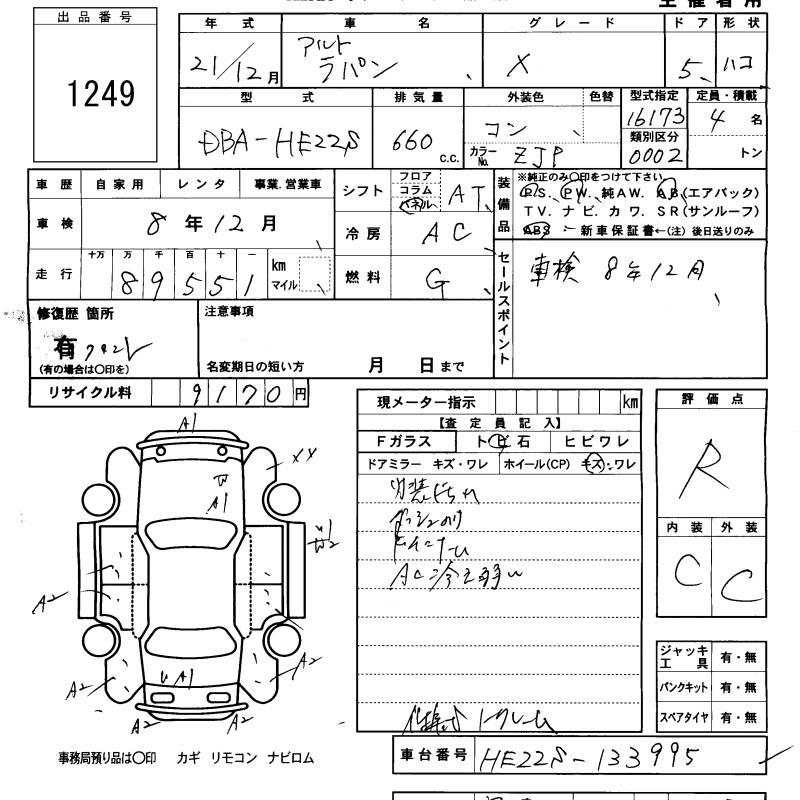 出品番号
1249
年式 車名 グレード ドア 形状
21/12月 アルト ラパン X 5 ハコ
型式 排気量 外装色 色替 型式指定 定員・積載
DBA-HE22S 660 c.c. コン 16173 4名
カラーNo. ZJP 類別区分 0002 トン
車歴 自家用 レンタ 事業.営業車
車検 8年12月
走行 十万 万 千 百 十 一
89551 km マイル
シフト フロア コラム パネル AT
冷房 AC
燃料 G
装備品
※純正のみ〇印をつけて下さい。
P.S. P.W. 純AW. A.B(エアバック)
TV. ナビ. カワ. SR(サンルーフ)
ABS ー 新車保証書←(注) 後日送りのみ
セールスポイント
車検 8年12月
修復歴 箇所
有
(有の場合は〇印を)
注意事項
名変期日の短い方 月 日まで
リサイクル料 9170円
現メーター指示 km
【査定員記入】
Fガラス トビ石 ヒビワレ
ドアミラー キズ・ワレ ホイール(CP) キズ・ワレ
内装よごれ
AC冷え弱い
評価点
R
内装 外装
C C
ジャッキ工具 有・無
パンクキット 有・無
スペアタイヤ 有・無
A1
XX
W
A1
A2
W2
A2
A2
A2
A2
U A1
事務局預り品は〇印 カギ リモコン ナビロム
車台番号 HE22S-133995